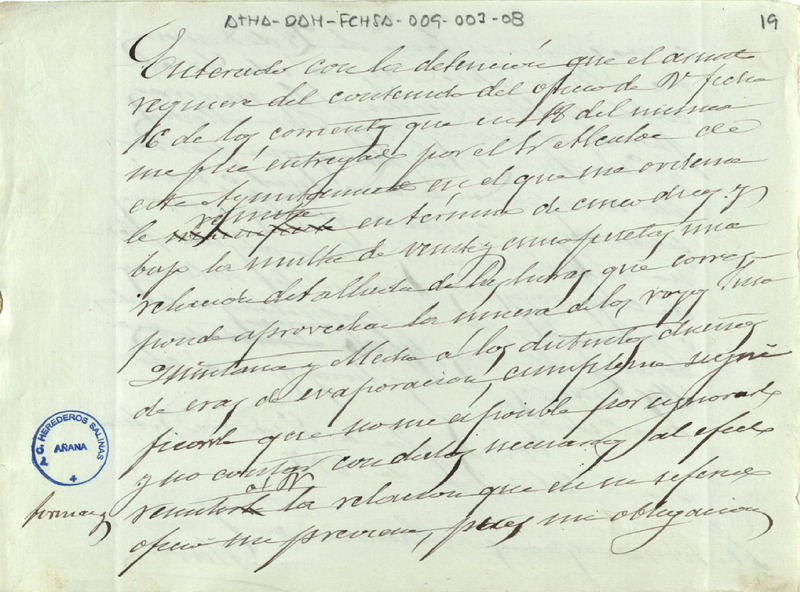 ATHA-DAH-FCHSA-009-003-08
19
Enterado con la detención que el asunto
requiere del contenido del oficio de V. fecha
16 de los corrientes que en 18 del mismo
me fué entregado por el Sr Alcalde de
este Ayuntamiento en el que me ordena
remita
le en término de cinco dias y
bajo la multa de veinte y cinco pesetas una
relacion detallada de las horas que corres-
ponde aprovechar la muera de los royos
Quintana y Media á los distintos dueños
de eras de evaporacion, cumpleme signi
ficarle que no me es posible por ignorarlo
y no contar con datos necesarios al efecto
al V
remitir la relacion que en su referido
oficio me previene, pues mi obligacion
A. C. HEREDEROS SALINAS
AÑANA